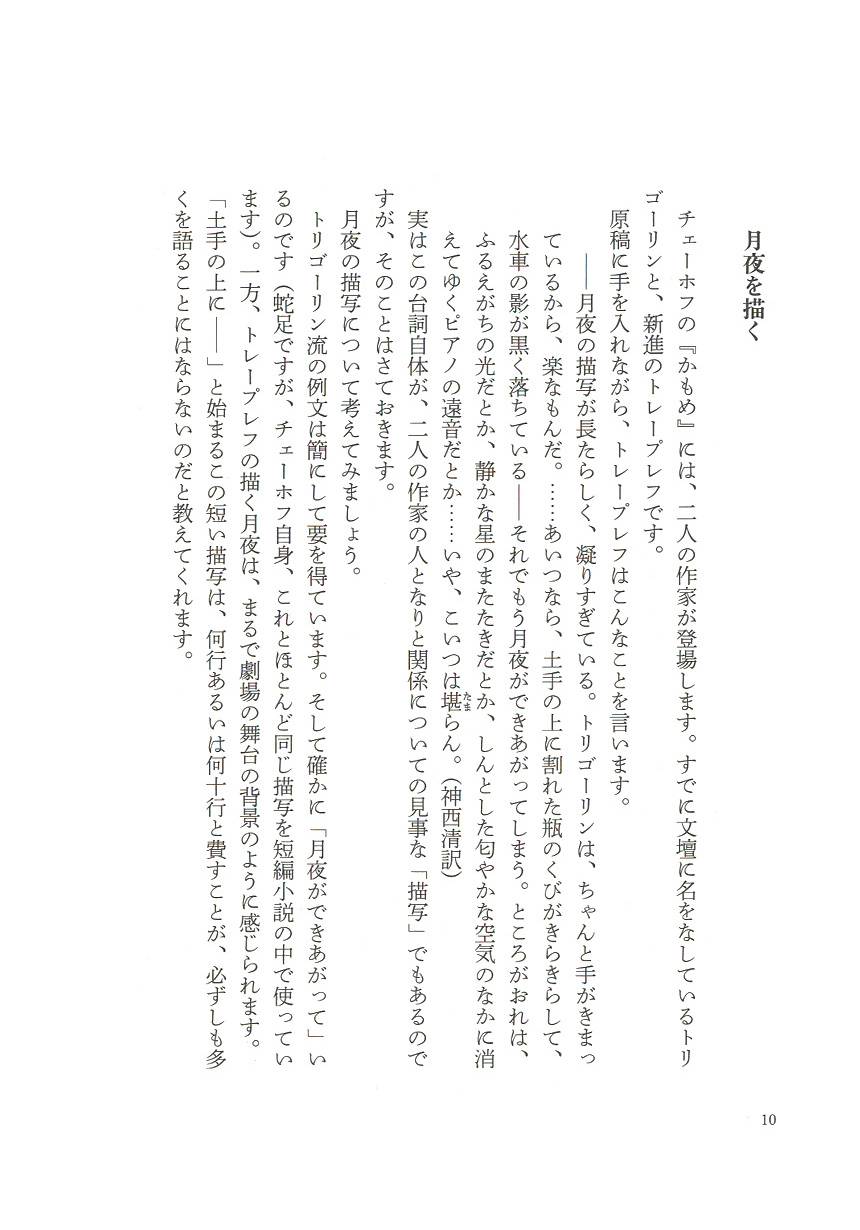 月夜を描く
チェーホフの『かもめ』には、二人の作家が登場します。すでに文壇に名をなしているトリ
ゴーリンと、新進のトレープレフです。
原稿に手を入れながら、トレープレフはこんなことを言います。
――月夜の描写が長たらしく、凝りすぎている。トリゴーリンは、ちゃんと手がきまっ
ているから、楽なもんだ。……あいつなら、土手の上に割れた瓶のくびがきらきらして、
水車の影が黒く落ちている――それでもう月夜ができあがってしまう。ところがおれは、
ふるえがちの光だとか、静かな星のまたたきだとか、しんとした匂やかな空気のなかに消
えてゆくピアノの遠音だとか……いや、こいつは堪らん。（神西清訳）
たま
実はこの台詞自体が、二人の作家の人となりと関係についての見事な「描写」でもあるので
すが、そのことはさておきます。
月夜の描写について考えてみましょう。
トリゴーリン流の例文は簡にして要を得ています。そして確かに「月夜ができあがって」い
るのです（蛇足ですが、チェーホフ自身、これとほとんど同じ描写を短編小説の中で使ってい
ます）。一方、トレープレフの描く月夜は、まるで劇場の舞台の背景のように感じられます。
「土手の上に――」と始まるこの短い描写は、何行あるいは何十行と費すことが、必ずしも多
くを語ることにはならないのだと教えてくれます。
10